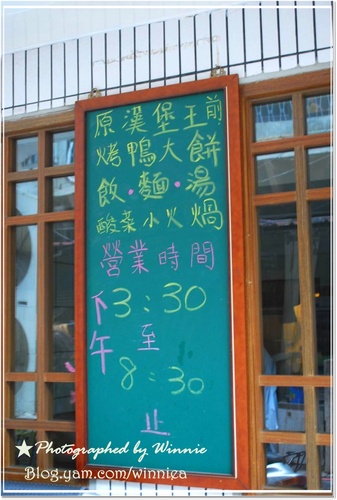 原漢堡王前
烤鴨大餅
飯·麵·湯
酸菜小火鍋
營業時間
下午 3:30
至
8:30
止
★Photographed by Winnie
Blog.yam.com/winnlea